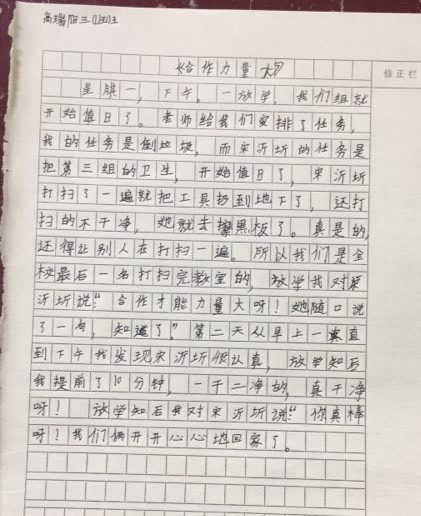 高瑞阳三(1)王
《合作力量大》
星期一，下午。一放学，我们组就
开始值日了。老师给我们安排了任务，
我的任务是倒垃圾，而宋沂圻的任务是
把第三组的卫生，开始值日了，宋沂圻
打扫了一遍就把工具扔到地下了，还打
扫的不干净，她就去擦黑板了。真是的，
还得让别人在打扫一遍。所以我们是全
校最后一名打扫完教室的，放学我对宋
沂圻说："合作才能力量大呀！她随口说
了一句，知道了"第二天从早上一直
到下午我发现宋沂圻很认真，放学知后
我提前了10分钟，一干二净的，真干净
呀！放学知后我对宋沂圻说："你真棒
呀！我们俩开开心心地回家了。
修正栏